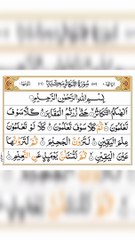 سُوْرَةُ التَّكَاثُرِ مَكِّيَّةٌ
بِسْمِ اللهِ الرَّحْمٰنِ الرَّحِيْمِ
اَلْهٰىكُمُ التَّكَاثُرُ حَتّٰى زُرْتُمُ الْمَقَابِرَ كَلَّا سَوْفَ
تَعْلَمُوْنَ ثُمَّ كَلَّا سَوْفَ تَعْلَمُوْنَ كَلَّا لَوْ
تَعْلَمُوْنَ عِلْمَ الْيَقِيْنِ لَتَرَوُنَّ الْجَحِيْمَ ثُمَّ لَتَرَوُنَّهَا
عَيْنَ الْيَقِيْنِ ثُمَّ لَتُسْـَٔلُنَّ يَوْمَىِٕذٍ عَنِ النَّعِيْمِ